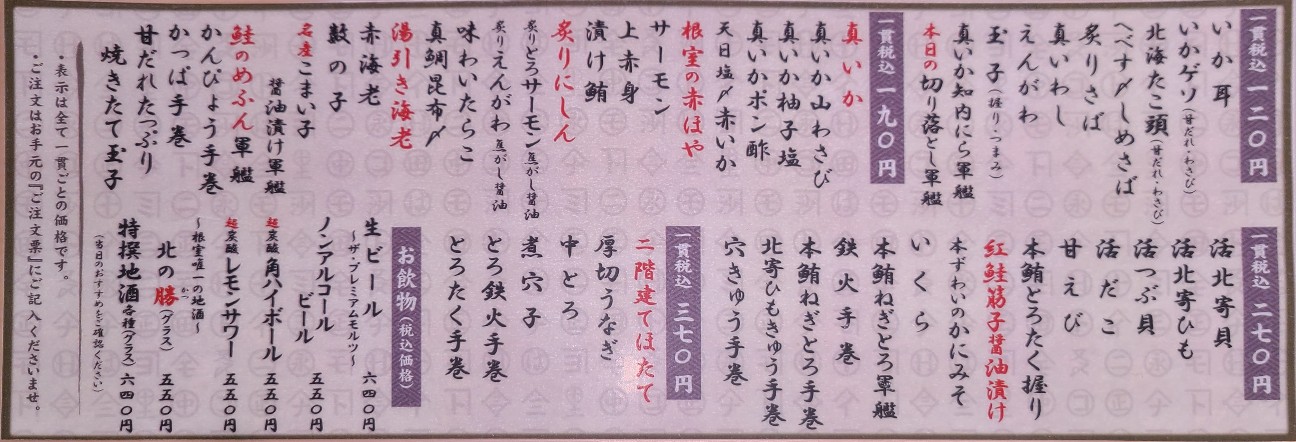 一貫税込 一二〇円
いか耳
いかゲソ(甘だれ・わさび)
北海たこ頭(甘だれ・わさび)
へべす〆しめさば
炙りさば
真いわし
えんがわ
玉子(握り・つまみ)
真いか知内にら軍艦
本日の切り落とし軍艦
一貫税込 一九〇円
真いか
真いか山わさび
真いか柚子塩
真いかポン酢
天日塩〆赤いか
根室の赤ほや
サーモン
上赤身
漬け鮪
炙りにしん
炙りどろサーモン焦がし醤油
炙りえんがわ焦がし醤油
味わいたらこ
真鯛昆布〆
湯引き海老
赤海老
数の子
名産こまい子
醤油漬け軍艦
鮭のめふん軍艦
かんぴょう手巻
かっぱ手巻
甘だれたっぷり
焼きたて玉子
一貫税込 二七〇円
活北寄貝
活北寄ひも
活つぶ貝
活だこ
甘えび
本鮪とろたく握り
紅鮭筋子醤油漬け
本ずわいのかにみそ
いくら
本鮪ねぎとろ軍艦
鉄火手巻
本鮪ねぎとろ手巻
北寄ひもきゅう手巻
穴きゅう手巻
一貫税込 三七〇円
二階建てほたて
厚切うなぎ
中とろ
煮穴子
とろ鉄火手巻
とろたく手巻
お飲物(税込価格)
生ビール 六四〇円
~ザ・プレミアムモルツ~
ノンアルコール
ビール 五五〇円
超炭酸 角ハイボール 五五〇円
超炭酸 レモンサワー 五五〇円
~根室唯一の地酒~
北の勝(グラス) 五五〇円
かつ
特撰地酒 各種(グラス) 六四〇円
(当日のおすすめをご確認ください)
・表示は全て一貫ごとの価格です。
・ご注文はお手元の『ご注文票』にご記入くださいませ。